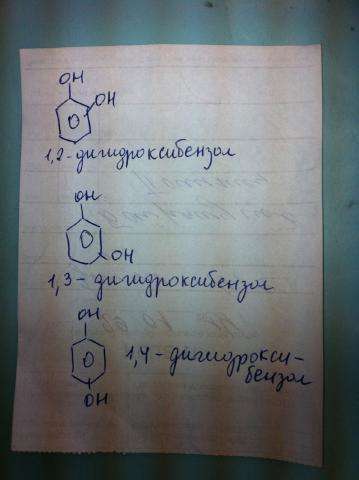 OH
OH
1,2-дигидроксибензол
OH
OH
1,3-дигидроксибензол
OH
1,4-дигидрокси-
бензол
OH